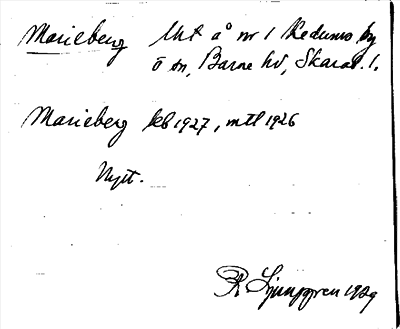 Marieberg Uht å nr 1 Kedums by
Ö sn, Barne hd, Skarab. l.
Marieberg kb 1927, mtl 1926
Nytt.
R. Ljunggren 1929